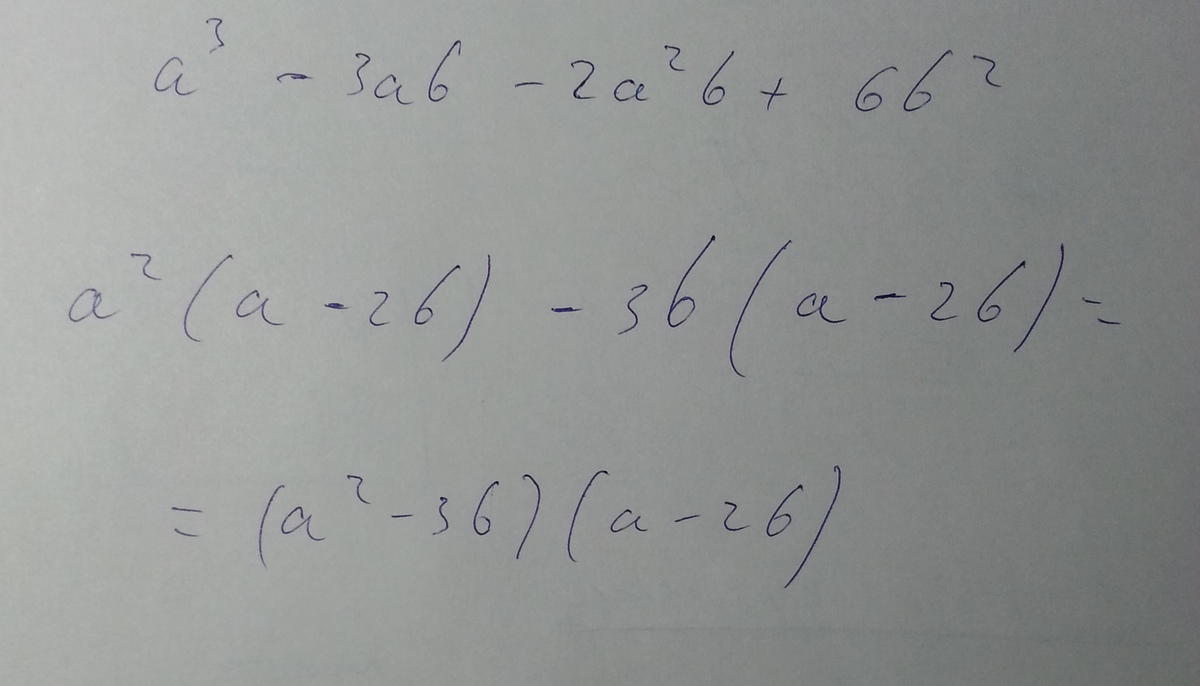 a³ - 3ab - 2a²b + 6b²
a² (a - 2b) - 3b (a - 2b) =
= (a² - 3b) (a - 2b)